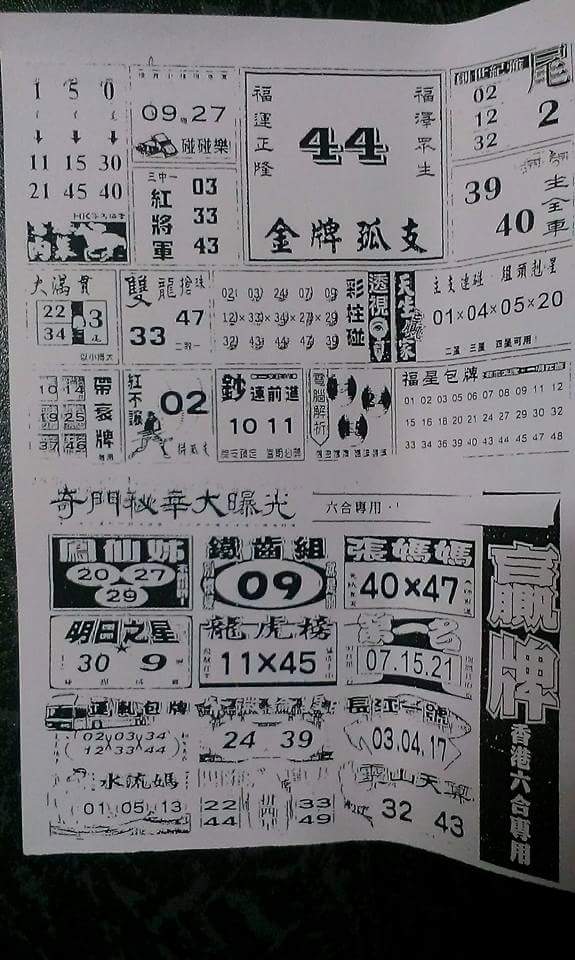 1 5 0
11 15 30
21 45 40
09 27
碰碰樂
三中一
紅將軍
03
33
43
福運正隆
44
福澤眾生
金牌孤支
尾
02
12
32
2
39
40
坐全車
大滿貫
22
34
3
尾
以小博大
雙龍搶珠
33
47
二取一
02 03 24 07 09
12×33×34×27×29
32 43 44 47 39
彩柱碰
透視
天生贏家
主支連碰 組頭剋星
01×04×05×20
二星 三星 四星可用!
10 12
19 25
37 46
帶衰牌
專用
紅不讓
02
鈔速前進
10 11
電腦解析
福星包牌
01 02 03 05 06 07 08 09 11 12
15 16 18 20 21 24 27 29 30 32
33 34 36 39 40 43 44 45 47 48
奇門秘笈大曝光
六合專用
鳳仙姊
20 27
29
鐵齒組
09
張媽媽
40×47
明日之星
30 9
龍虎榜
11×45
第一名
07.15.21
運財包牌
02 03 34
12 33 44
24 39
長江一號
03.04.17
水流媽
01 05 13
22 33
44 49
32 43
贏牌
香港六合專用